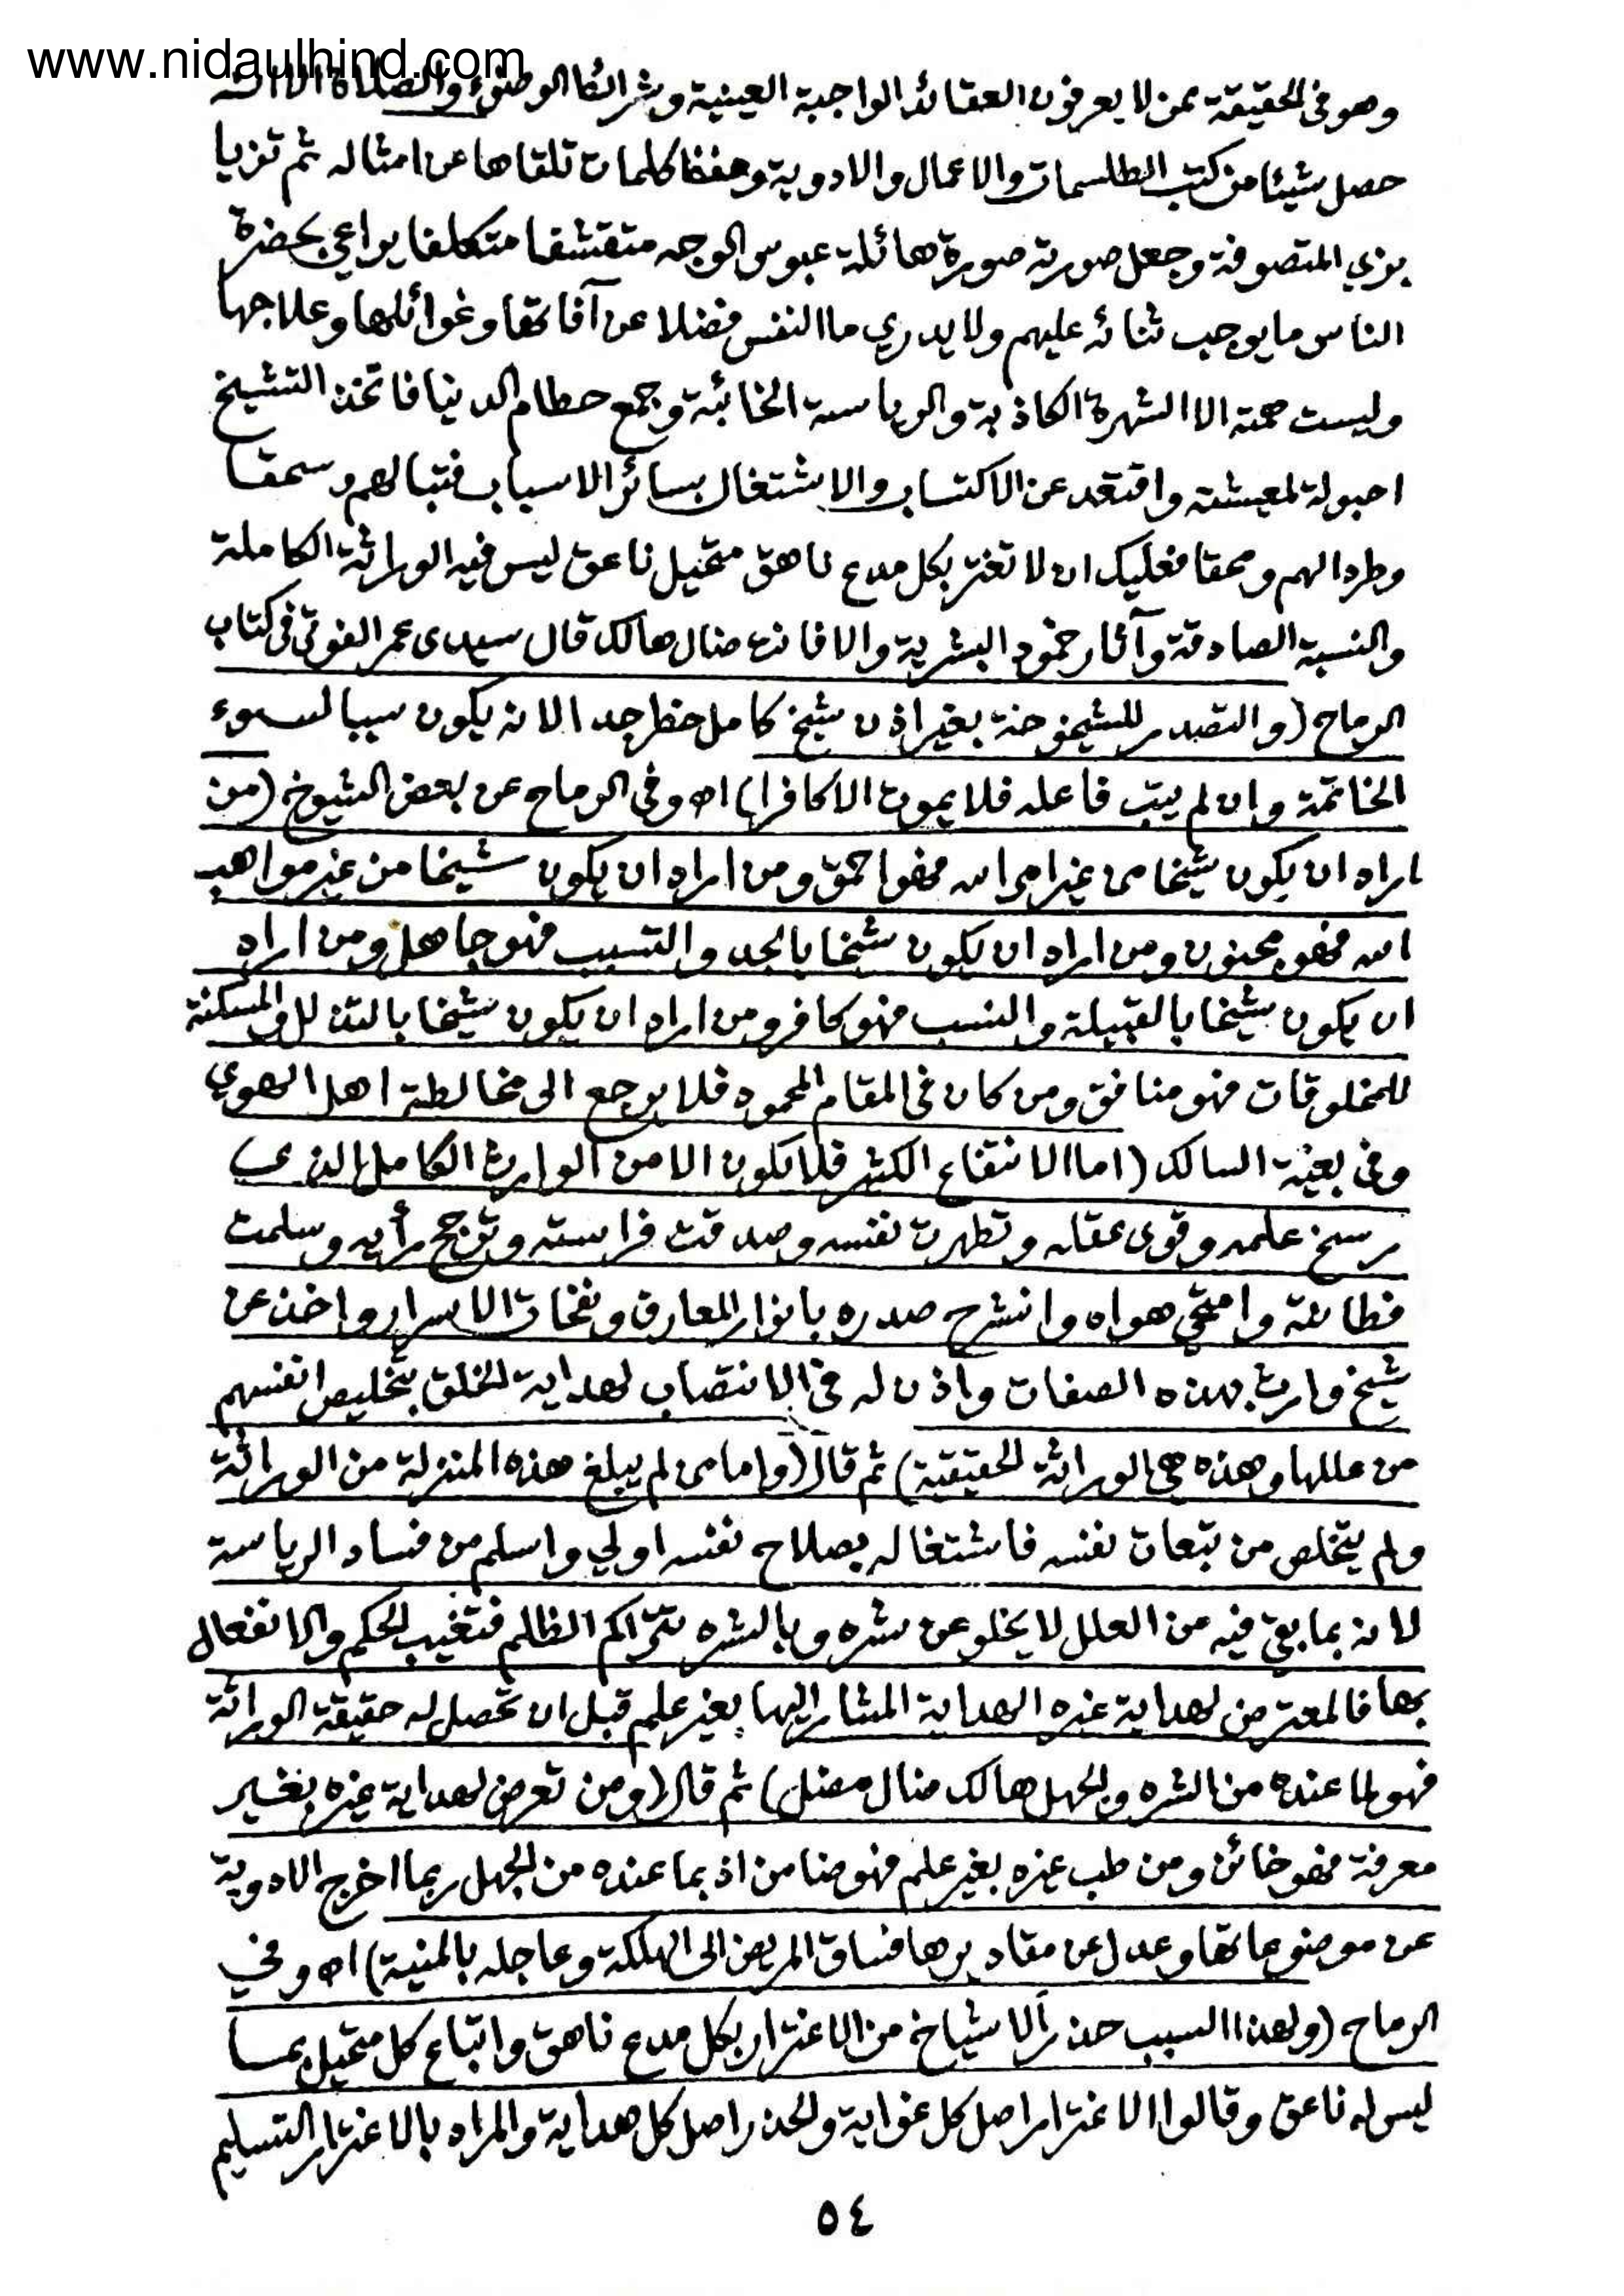 www.nidaulhind.com
وهو في الحقيقة ممن لا يعرفون العقائد الواجبة العينية وشرائط الوضوء والصلاة الا انه
حصل شيئا من كتب الطلسمات والاعمال والادوية وحفظ كلمات تلقاها عن امثاله ثم تزيا
بزي المتصوفة وجعل صورته صورة هائلة عبوس الوجه متقشفا متكلفا يراعي بحضرة
الناس ما يوجب ثنائه عليهم ولا يدري ما النفس فضلا عن آفاتها وغوائلها وعلاجها
وليست همته الا الشهرة الكاذبة والرياسة الخائبة وجمع حطام الدنيا فاتخذ التشيخ
احبولة لمعيشته واقتعد عن الاكتساب والاشتغال بسائر الاسباب فتبا لهم وسحقا
وطردا لهم ومحقا فعليك ان لا تغتر بكل مدع ناهق متحيل ناعق ليس فيه الوراثة الكاملة
والنسبة الصادقة وآثار خمود البشرية والا فانه ضال هالك قال سيدى عمر الفوتي في كتاب
الرماح (والتصدر للشيخوخة بغير اذن شيخ كامل خطر جدا لانه يكون سببا لسوء
الخاتمة وان لم يتب فاعله فلا يموت الا كافرا) اه وفي الرماح عن بعض الشيوخ (من
اراد ان يكون شيخا من غير امر الله فهو احمق ومن اراد ان يكون شيخا من غير مواهب
الله فهو مجنون ومن اراد ان يكون شيخا بالجد والتسبب فهو جاهل ومن اراد
ان يكون شيخا بالقبيلة والنسب فهو كافر ومن اراد ان يكون شيخا بالتذلل والمسكنة
للمخلوقات فهو منافق ومن كان في المقام المحمود فلا يرجع الى مخالطة اهل الهوي
وفي بغية السالك (اما الانتفاع الكثير فلا يكون الا من الوارث الكامل الذى
رسخ علمه وقوى عقله وتطهرت نفسه وصدقت فراسته وترجح رأيه وسلمت
فطانته وامتحى هواه وانشرح صدره بانوار المعارف ونفحات الاسرار واخذ عن
شيخ وارث بهذه الصفات واذن له في الانتصاب لهداية الخلق بتخليص انفسهم
من عللها وهذه هي الوراثة الحقيقية) ثم قال (واما من لم يبلغ هذه المنزلة من الوراثة
ولم يتخلص من تبعات نفسه فاشتغاله بصلاح نفسه اولي واسلم من فساد الرياسة
لانه بما بقي فيه من العلل لا يخلو عن شره وبالشره تتراكم الظلم فتغيب الحكم والانفعال
بها فالمعترض لهداية غيره الهداية المشار اليها بغير علم قبل ان تحصل له حقيقة الوراثة
فهو لما عنده من الشره والجهل هالك ضال مضل) ثم قال (ومن تعرض لهداية غيره بغير
معرفة فهو خائن ومن طب غيره بغير علم فهو ضامن اذ بما عنده من الجهل ربما اخرج الادوية
عن موضوعاتها وعدل عن مقاديرها فساق المريض الى الهلكة وعاجله بالمنية) اه وفي
الرماح (ولهذا السبب حذر الاشياخ من الاغترار بكل مدع ناهق واتباع كل متحيل بما
ليس له ناعق وقالوا الاغترار اصل كل غواية والحذر اصل كل هداية والمراد بالاغترار التسليم
٥٤